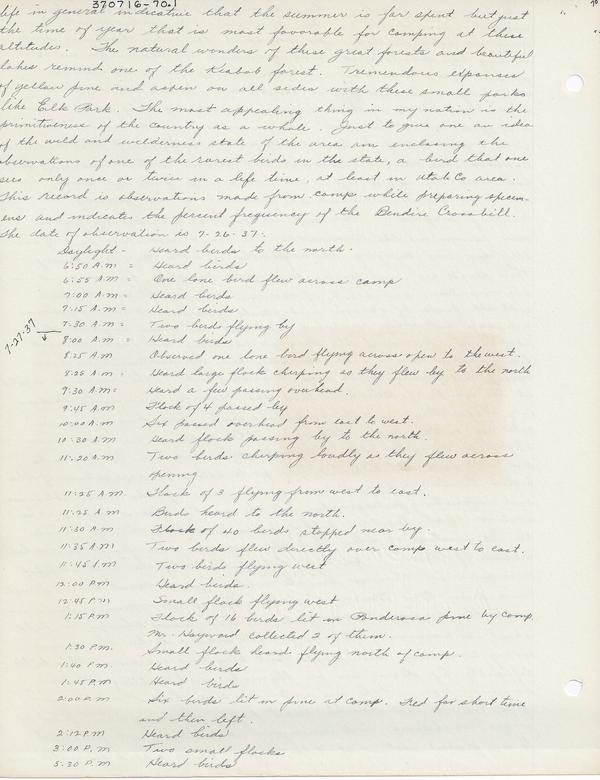 370716-70.1
life in general indicative that the summer is far spent but just
the time of year that is most favorable for camping at these
altitudes. The natural wonders of these great forests and beautiful
lakes remind one of the Kaibab forest. Tremendous expanses
of yellow pine and aspen on all sides with these small parks
like Elk Park. The most appealing thing in my nation is the
primitiveness of the country as a whole. Just to give one an idea
of the wild and wilderness state of the area am inclosing the
observations of one of the rarest birds in the state, a bird that one
sees only once or twice in a life time, at least in Utah Co area.
This record is observations made from camp while preparing specim-
ens and indicates the percent frequency of the Bendire Crossbill.
The date of observation is 7-26-37:
Daylight - Heard birds to the north.
6:50 A.M = Heard birds
6:55 A.M = One lone bird flew across camp
7:00 A.M = Heard birds
7:15 A.M = Heard birds
7:30 A.M = Two birds flying by
7-27-37
8:00 A.M = Heard birds
8:25 A.M Observed one lone bird flying across open to the west.
8:25 A.M = Heard large flock cherping as they flew by to the north
9:30 A.M = Heard a few passing overhead.
9:45 A.M Flock of 4 passed by
10:00 A.M Six passed overhead from east to west.
10:30 A.M Heard flock passing by to the north.
11:20 A.M Two birds cherping loudly as they flew across
opening
11:25 A.M. Flock of 3 flying from west to east.
11:25 A.M Birds heard to the north.
11:30 A.M Flock of 40 birds stopped near by.
11:35 A.M Two birds flew directly over camp west to east.
11:45 A.M Two birds flying west
12:00 P.M Heard birds.
12:45 P.M Small flock flying west
1:15 P.M Flock of 16 birds lit in Ponderosa pine by camp.
Mr. Hayward collected 2 of them.
1:30 P.M. Small flock heard flying north of camp.
1:40 P.M Heard birds
1:45 P.M Heard birds
2:00 P.M Six birds lit in pine at camp. Fed for short time
and then left.
2:12 P.M Heard birds
3:00 P.M Two small flocks
3:30 P.M Heard birds